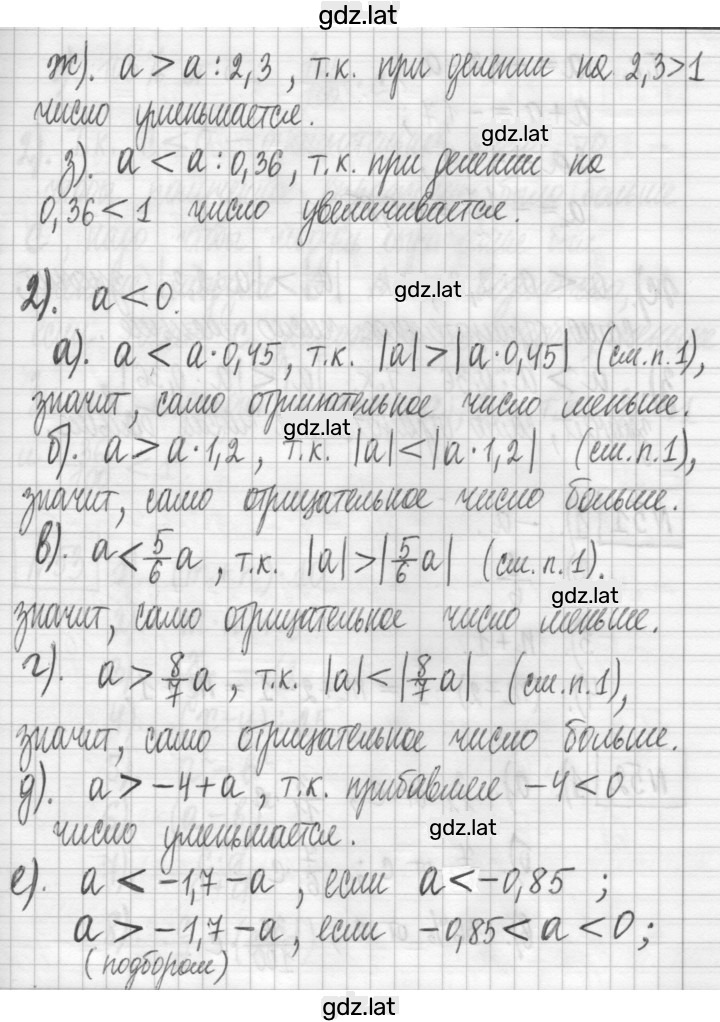 gdz.lat
ж). a > a : 2,3 , т.к. при делении на 2,3>1
число уменьшается.
gdz.lat
з). a < a : 0,36 , т.к. при делении на
0,36 < 1 число увеличивается.
2). a < 0.
gdz.lat
а). a < a · 0,45 , т.к. |a| > |a · 0,45| (см.п.1),
значит, само отрицательное число меньше.
gdz.lat
б). a > a · 1,2 , т.к. |a| < |a · 1,2| (см.п.1),
значит, само отрицательное число больше.
в). a < 5/6 a , т.к. |a| > |5/6 a| (см.п.1).
gdz.lat
значит, само отрицательное число меньше.
г). a > 8/7 a , т.к. |a| < |8/7 a| (см.п.1),
значит, само отрицательное число больше.
д). a > -4 + a , т.к. прибавляя -4 < 0
число уменьшается.
gdz.lat
е). a < -1,7 - a , если a < -0,85 ;
a > -1,7 - a , если -0,85 < a < 0 ;
(подбором)
gdz.lat